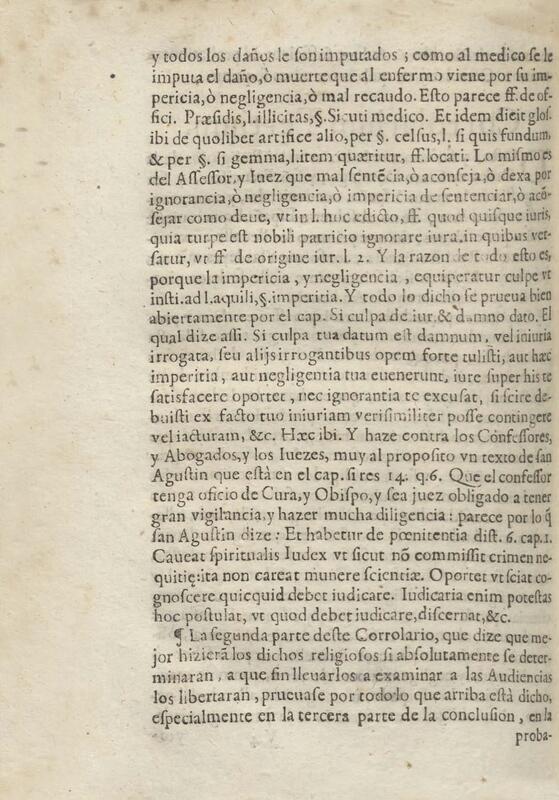 y todos los daños le son imputados ; como al medico se le
imputa el daño,ò muerte que al enfermo viene por su im-
pericia,ò negligencia,ò mal recaudo. Esto parece ff. de of-
fici. Præsidis,l.illicitas,§.Sicuti medico. Et idem dicit glos.
ibi de quolibet artifice alio,per §. celsus,l. si quis fundum,
& per §. si gemma,l.item quæritur, ff. locati. Lo mismo es
del Assessor,y Iuez que mal sentẽcia,ò aconseja,ò dexa por
ignorancia,ò negligencia,ò impericia de sentenciar,ò acõ-
sejar como deue, vt in l. hoc edicto, ff. quod quisque iuris,
quia turpe est nobili patricio ignorare iura.in quibus ver-
satur, vt ff de origine iur. l. 2. Y la razon de todo esto es,
porque la impericia , y negligencia , equiperatur culpe vt
insti.ad l.aquili,§.imperitia. Y todo lo dicho se prueua bien
abiertamente por el cap. Si culpa de iur.& damno dato. El
qual dize assi. Si culpa tua datum est damnum, vel iniuria
irrogata, seu alijs irrogantibus opem forte tulisti, aut hæc
imperitia , aut negligentia tua euenerunt, iure super his te
satisfacere oportet , nec ignorantia te excusat, si scire de-
buisti ex facto tuo iniuriam verisimiliter posse contingere
vel iacturam, &c. Hæc ibi. Y haze contra los Cõfessores,
y Abogados,y los Iuezes, muy al proposito vn texto de san
Agustin que està en el cap. si res 14. q.6. Que el confessor
tenga oficio de Cura,y Obispo,y sea juez obligado a tener
gran vigilancia,y hazer mucha diligencia : parece por lo q̃
san Agustin dize : Et habetur de pœnitentia dist. 6. cap.1.
Caueat spiritualis Iudex vt sicut nõ commissit crimen ne-
quitię:ita non careat munere scientiæ. Oportet vt sciat co-
gnoscere quicquid debet iudicare. Iudicaria enim potestas
hoc postulat, vt quod debet iudicare,discernat,&c.
¶ La segunda parte deste Corrolario, que dize que me-
jor hizierã los dichos religiosos si absolutamente se deter-
minaran , a que sin lleuarlos a examinar a las Audiencias
los libertaran , prueuase por todo lo que arriba està dicho,
especialmente en la tercera parte de la conclusion , en la
proba-